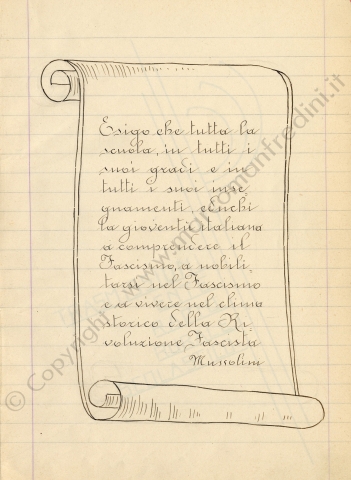 Esigo che tutta la
scuola, in tutti i
suoi gradi e in
tutti i suoi inse-
gnamenti, educhi
la gioventù italiana
a comprendere il
Fascismo, a nobili-
tarsi nel Fascismo
e a vivere nel clima
storico della Ri-
voluzione Fascista
Mussolini
© Copyright - www.marcomanfredini.it